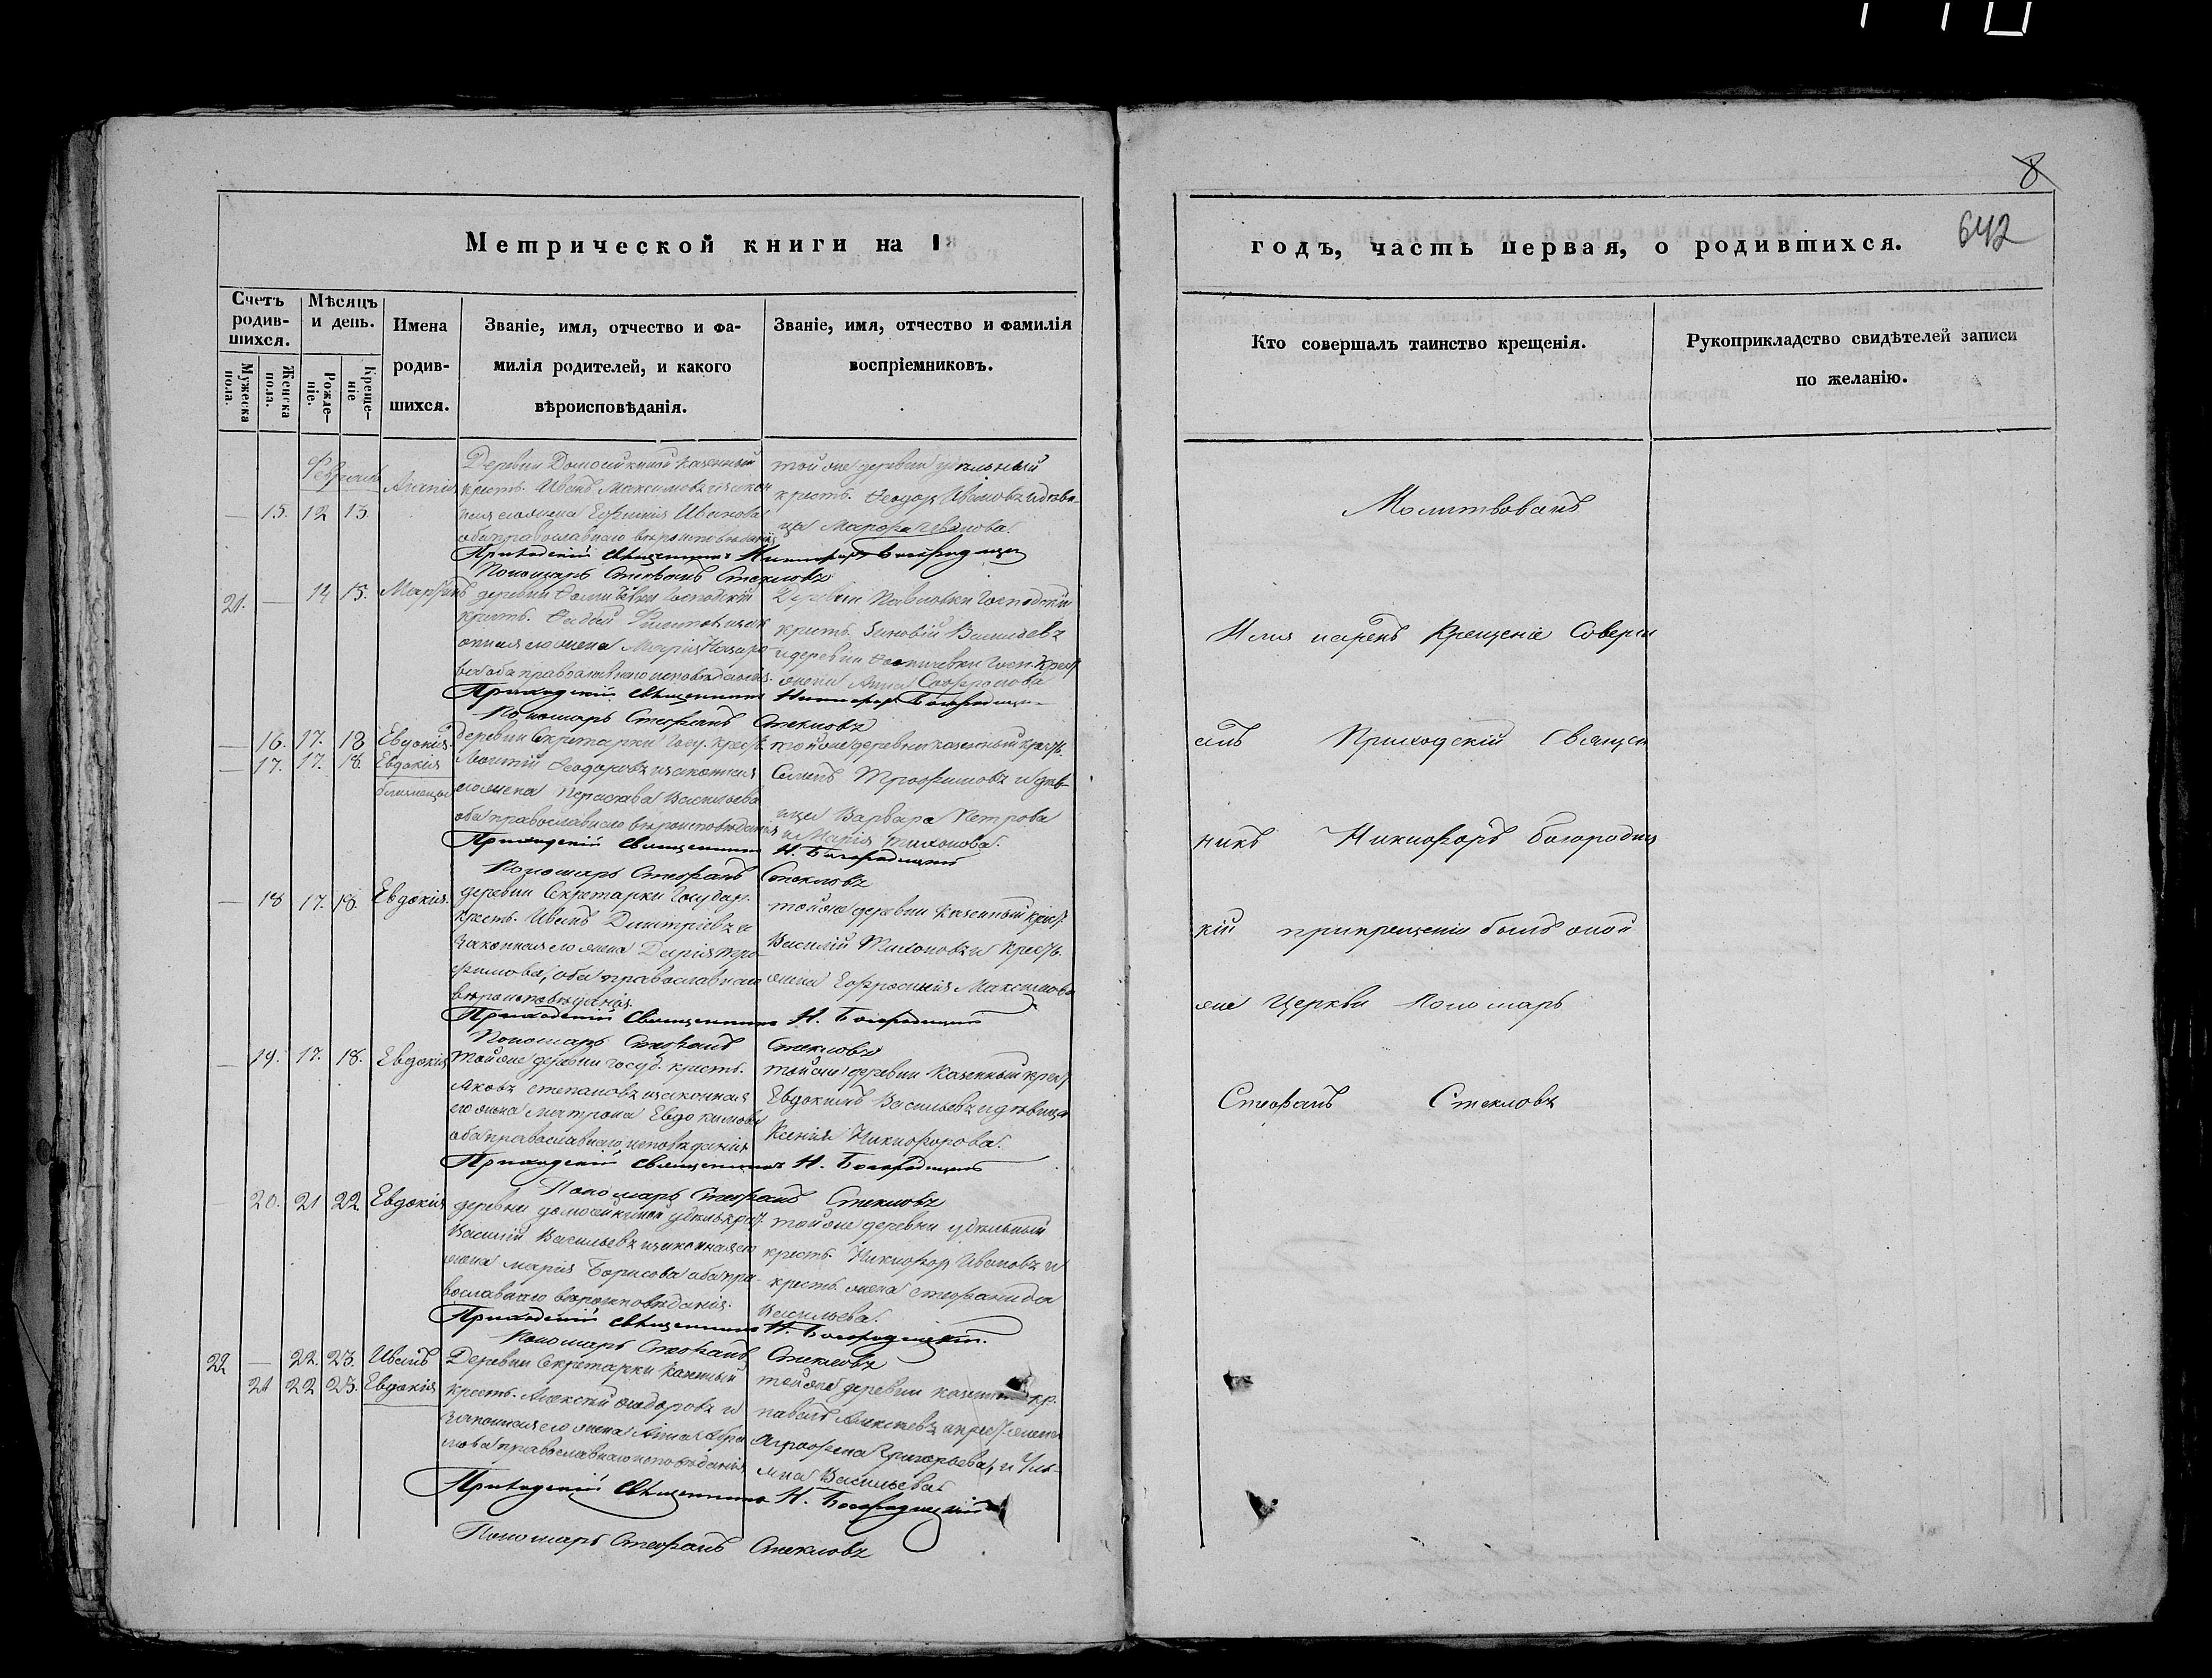 8
642
Метрической книги на 1
годъ, часть первая, о родившихся.
Счетъ родив-шихся.
Мѣсяцъ и день.
Имена родив-шихся.
Званіе, имя, отчество и фа-
милія родителей, и какого
вѣроисповѣданія.
Званіе, имя, отчество и фамилія
воспріемниковъ.
Кто совершалъ таинство крещенія.
Рукоприкладство свидѣтелей записи
по желанію.
Мужеска пола.
Женска пола.
Рожде-ніе.
Креще-ніе
Февраль
— 15. 12 13
Деревни казенный
крест. Иванъ Максимовъ и закон
ная его жена Ефимія Иванова
оба православнаго вѣроисповѣданія
той же деревни удѣльный
крест. Феодоръ Ивановъ и дѣви-
ца Иванова.
Приходскій Священникъ Никифоръ Богородицкій
Пономарь Стефанъ Стекловъ
21. — 14 15.
деревни господскій
крест. и зак
онная его жена Марія Назаро
ва оба православнаго исповѣданія.
Деревни Павловки Господскій
крест. Зиновій Васильевъ
и деревни Госп. крест
жена Анна Софронова
Приходскій Священникъ Никифоръ Богородицкій
Пономарь Стефанъ Стекловъ
— 16. 17. 18 Евдокія.
— 17. 17. 18. Евдокія
близнецы
деревни Секретарки Госу. крест.
Феодоровъ и законная
его жена Васильева
оба православнаго вѣроисповѣданія
той же деревни казенный крест.
Семенъ Трофимовъ и дѣв-
ица Варвара Петрова
и Марія Тихонова.
Приходскій Священникъ Н. Богородицкій
Пономарь Стефанъ Стекловъ
— 18 17. 18. Евдокія.
деревни Секретарки Государ.
крест. Иванъ Димитріевъ и
законная его жена Дарія Тро-
фимова, оба православнаго
вѣроисповѣданія.
той же деревни казенный крест.
Василій Тихоновъ и крест.
жена Ефросинія Максимова
Приходскій Священникъ Н. Богородицкій
Пономарь Стефанъ Стекловъ
— 19. 17. 18. Евдокія
той же деревни госуд. крест.
Яковъ Степановъ и законная
его жена Матрона Евдокимова
оба православнаго исповѣданія
той же деревни казенный крест.
Евдокимъ Васильевъ и дѣвица
Ксенія Никифорова.
Приходскій Священникъ Н. Богородицкій
Пономарь Стефанъ Стекловъ
— 20. 21 22 Евдокія
деревни удѣль. крест.
Василій Васильевъ и законная его
жена Марія Борисова оба пра-
вославнаго вѣроисповѣданія.
той же деревни удѣльный
крест. Никифоръ Ивановъ и
крест. жена Стефанида
Васильева.
Приходскій Священникъ Н. Богородицкій.
Пономарь Стефанъ Стекловъ
22 — 22. 23. Иванъ
21 22 23. Евдокія
Деревни Секретарки
крест. Алексѣй Феодоровъ и
законная его жена Анна
православнаго исповѣданія
той же деревни кр.
Павелъ Алексѣевъ и крест. жена
Агрофена Григорьева, и Уль-
яна Васильева
Приходскій Священникъ Н. Богородицкій
Пономарь Стефанъ Стекловъ
Молитвовалъ
Имя нарекъ Крещеніе Соверш
алъ Приходскій Священ
никъ Никифоръ Богородиц
кій при крещеніи былъ оной
же Церкви Пономарь
Стефанъ Стекловъ